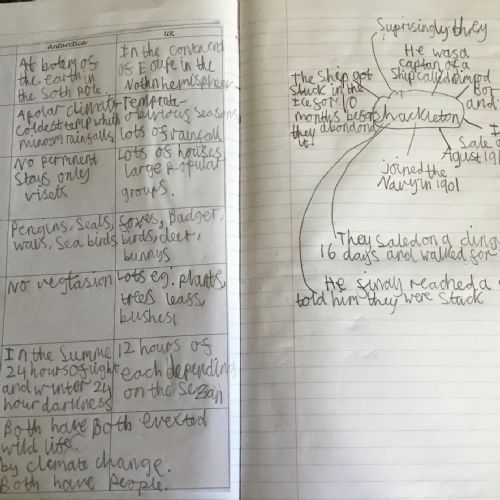 Antarctica
UK
At botem of
the earth in
the Soth pole.
In the contenent
of Eoupe in the
Nothn hemispheer
A polar climate
coldest temp which
minom rainfalls
Temprate-
obvious seasons
lots of rainfall
No perment
stays only
visets
Lots of houses,
large popular
groups.
Pengins, Seals,
wals, sea birds
foxes, Badger,
birds, deer,
bunnys
No vegtasion
Lots eg. plants,
trees leass,
bushes,
In the Summe
24 hours of light
and winter 24
hour darkness
12 hours of
each depending
on the
Both have
wild life.
by climate change.
Both have people.
Both evexted
Suprisingly they
He was a
captan of a
Ship called nimrod
The ship got
stuck in the
Ice for 10
months before
they abondond
it!
Shackleton
Bot
and
I
Sale
Agust 191
joined the
Navy in 1901
They Saled on a ding
16 days and walked for
He finaly reached a
told him they were stuck